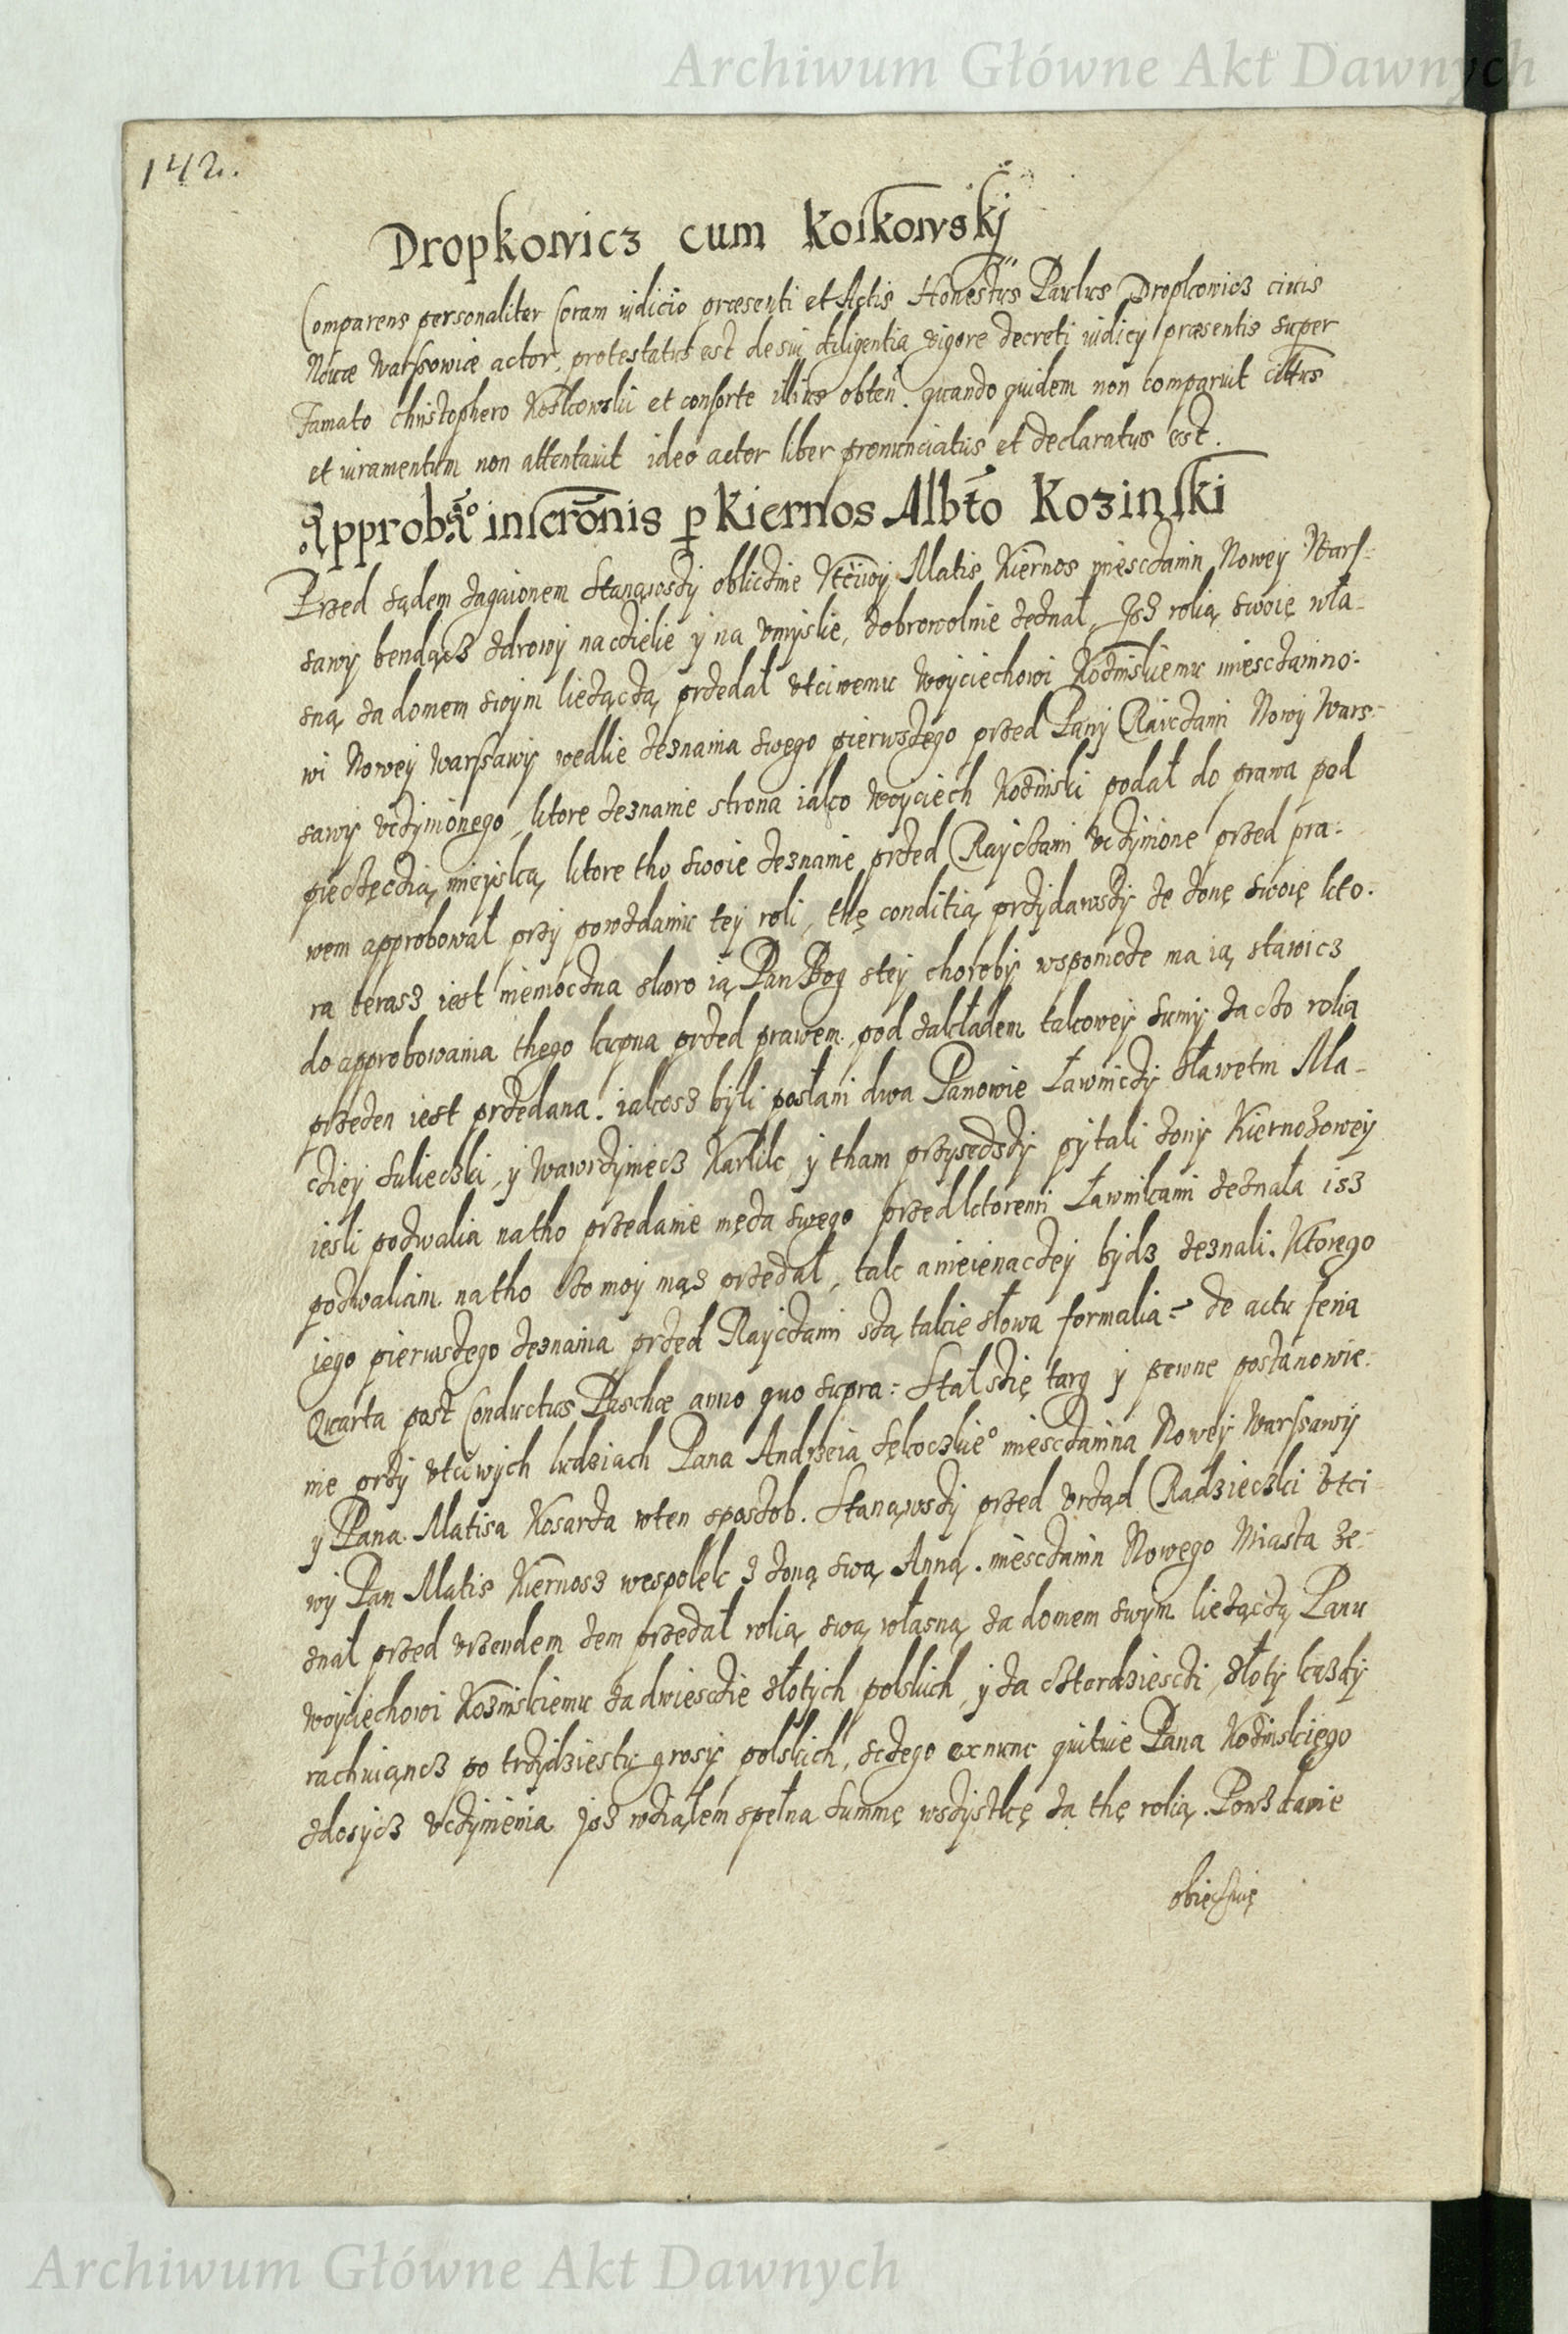 Archiwum Główne Akt Dawnych
142.
Dropkowicz cum Koikowskj
Comparens personaliter Coram iudicio præsenti et Actis Honestus Paulus Dropkowicz ciuis
Nouæ Warssowiæ actor, protestatus est de sui diligentia vigore decreti iudicij præsentis super
Famato Christophero Koikowski et consorte illius obten. quando quidem non comparuit citatus
et iuramentum non attentauit ideo actor liber pronunciatus et declaratus est.
Approbatio inscrōnis p Kiernos Albto Kozinski
Przed sądem zagaionem stanąwszy obliczniе Vtćiwy Matis Kiernos miesczanin Nowey Wars-
sawy bendącz zdrowy na cziele y na vmysle, dobrowolnie zeznał, Jsz rolią swoię wła-
sną za domem swym liezączą przedał vtciwemu Woyciechowi Kozinskiemu miesczanino-
wi Nowey Warssawy wedlie zeznania swego pierwszego przed Pany Raiczami Nowy Wars-
sawy vczynionego, ktore zeznanie strona iako Woyciech Koziński podał do prawa pod
pieczęczią mieyską, ktore tho swoie zeznanie przed Rayczami vczynione przed pra-
wem approbował przy powzdaniu tey roli, thę conditią przydawszy ze zonę swoię kto-
ra terasz iest niemoczna skoro ią Pan Bog stey choroby wspomoze ma ią stawicz
do approbowania thego kupna przed prawem, pod zakładem takowey sumy za czo rolia
przezen iest przedana. iakosz byli posłani dwa Panowie Ławniczy sławetni Ma-
cziey Suliecki, y Wawrzyniecz Karlik y tham przyszedszy pytali zony Kiernoszowey
iesli pozwalia na tho przedanie męza swego przed ktoremi Ławnikami zeznała isz
pozwaliam na tho czo moy mąs przedał, tak a nieienaczey bydz zeznali. Ktorego
iego pierwszego zeznania przed Rayczami szą takie słowa formalia = de actu feria
Quarta post Conductus Paschæ anno quo supra = Stał szię targ y pewne postanowie-
nie przy vtciwych ludziach Pana Andrzeia Sękoczkie° miesczanina Nowey Warssawy
y Pana Matisa Kosarza wten sposzob. Stanąwszy przed vrząd Radzieczki vtci-
wy Pan Matis Kiernosz wespolek z zoną swą Anną. miesczanin Nowego Miasta ze-
znał przed vrzendem zem przedał rolią swą własną za domem swym liezączą Panu
Woyciechowi Kozinskiemu za dwiesczie złotych polskich, y za czterdziesczi, złoty kazdy
rachuiąncz po trzydziestu groszy polskich, sczego exnunc quituie Pana Kozinskiego
zdosycz vczynienia Jsz wziąłem spełna summę wszystkę za thę rolią. Powzdanie
obiecuię
Archiwum Główne Akt Dawnych